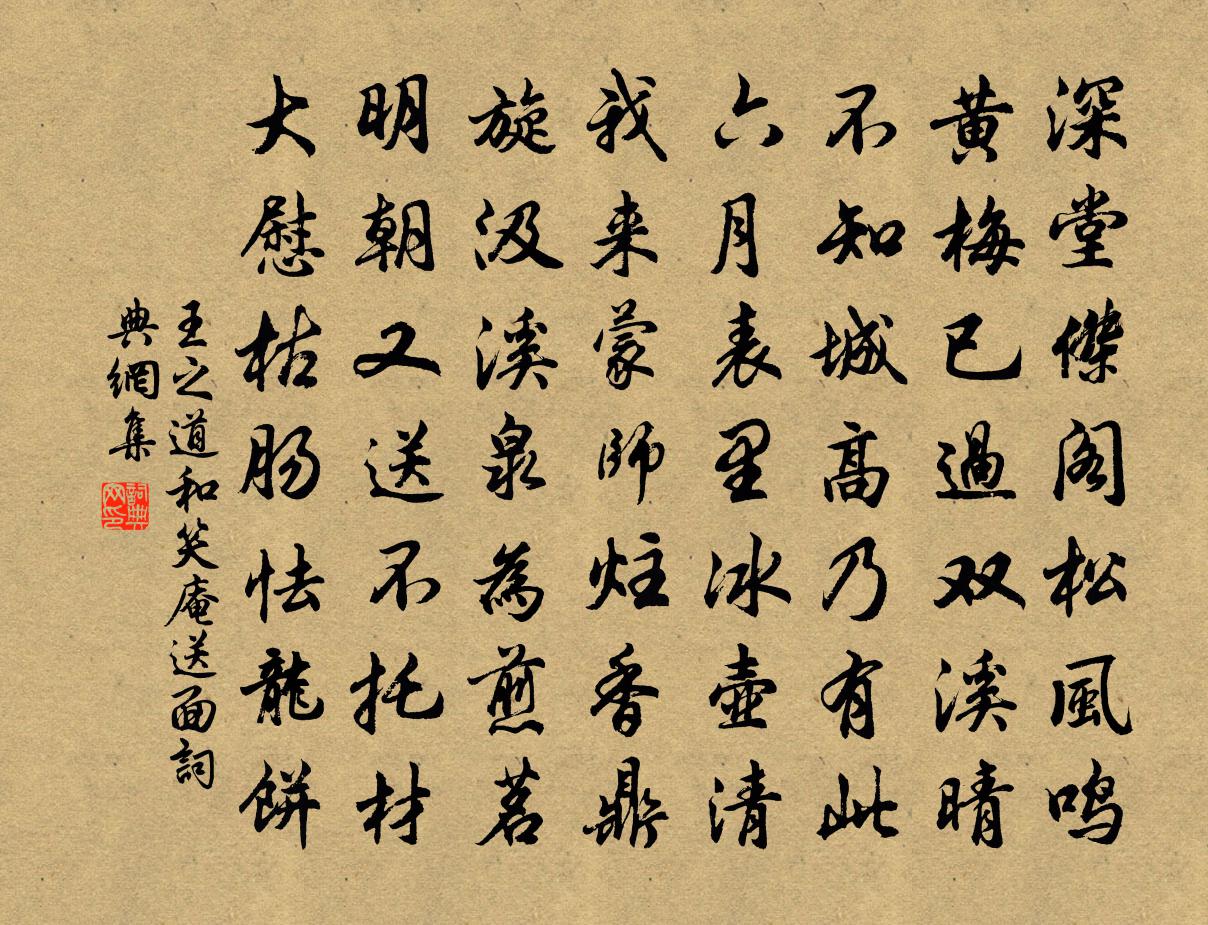 深堂傑阁松風鸣
黄梅已過双溪晴
不知城高乃有此
六月表里冰壺清
我来蒙師炷香鼎
旋汲溪泉為煎茗
明朝又送不托材
大慰枯肠怯龍餅
王之道和笑庵送面詞
典網集
詞典网印